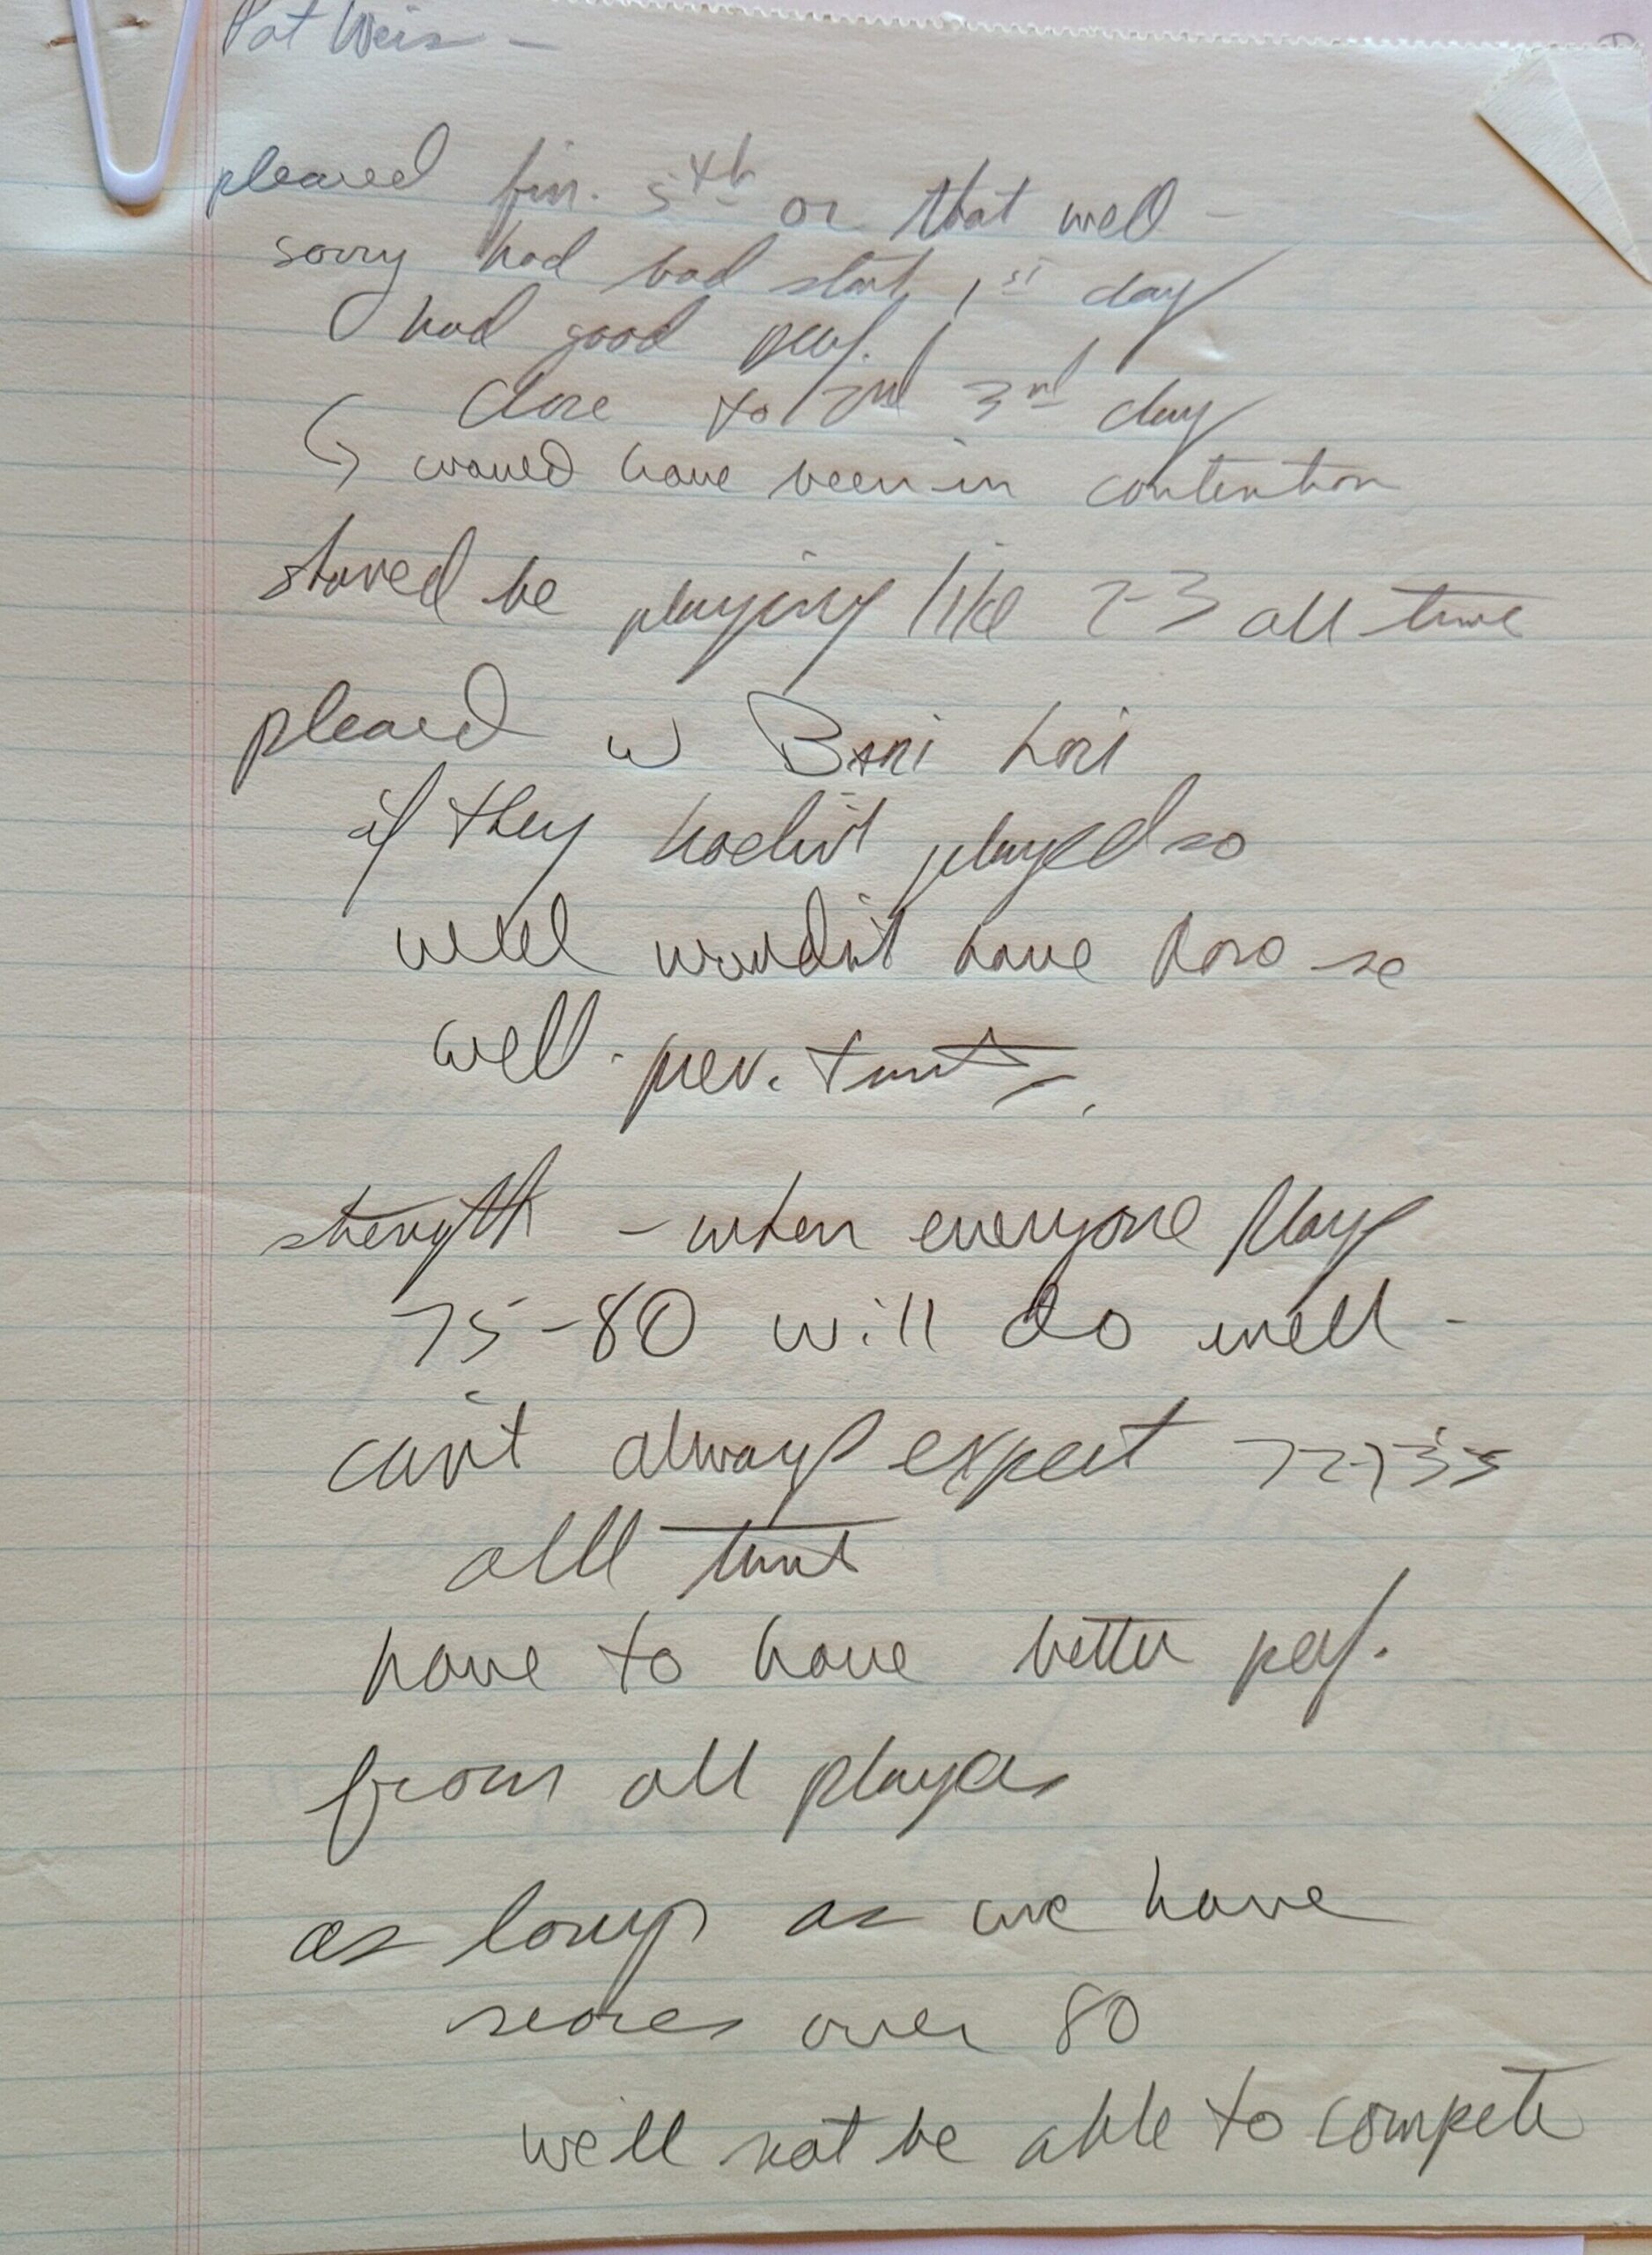 Pat Weis -
pleased fin. 5th or that well -
sorry had bad start 1st day
had good perf.
close to 2nd 3rd day
would have been in contention
should be playing like 2-3 all time
pleased w Lori
if they hadn't played so
well wouldn't have done so
well - prev. tmts.
strength - when everyone plays
75-80 will do well -
can't always expect 72-73s
all tmt
have to have better perf.
from all players
as long as we have
scores over 80
we'll not be able to compete